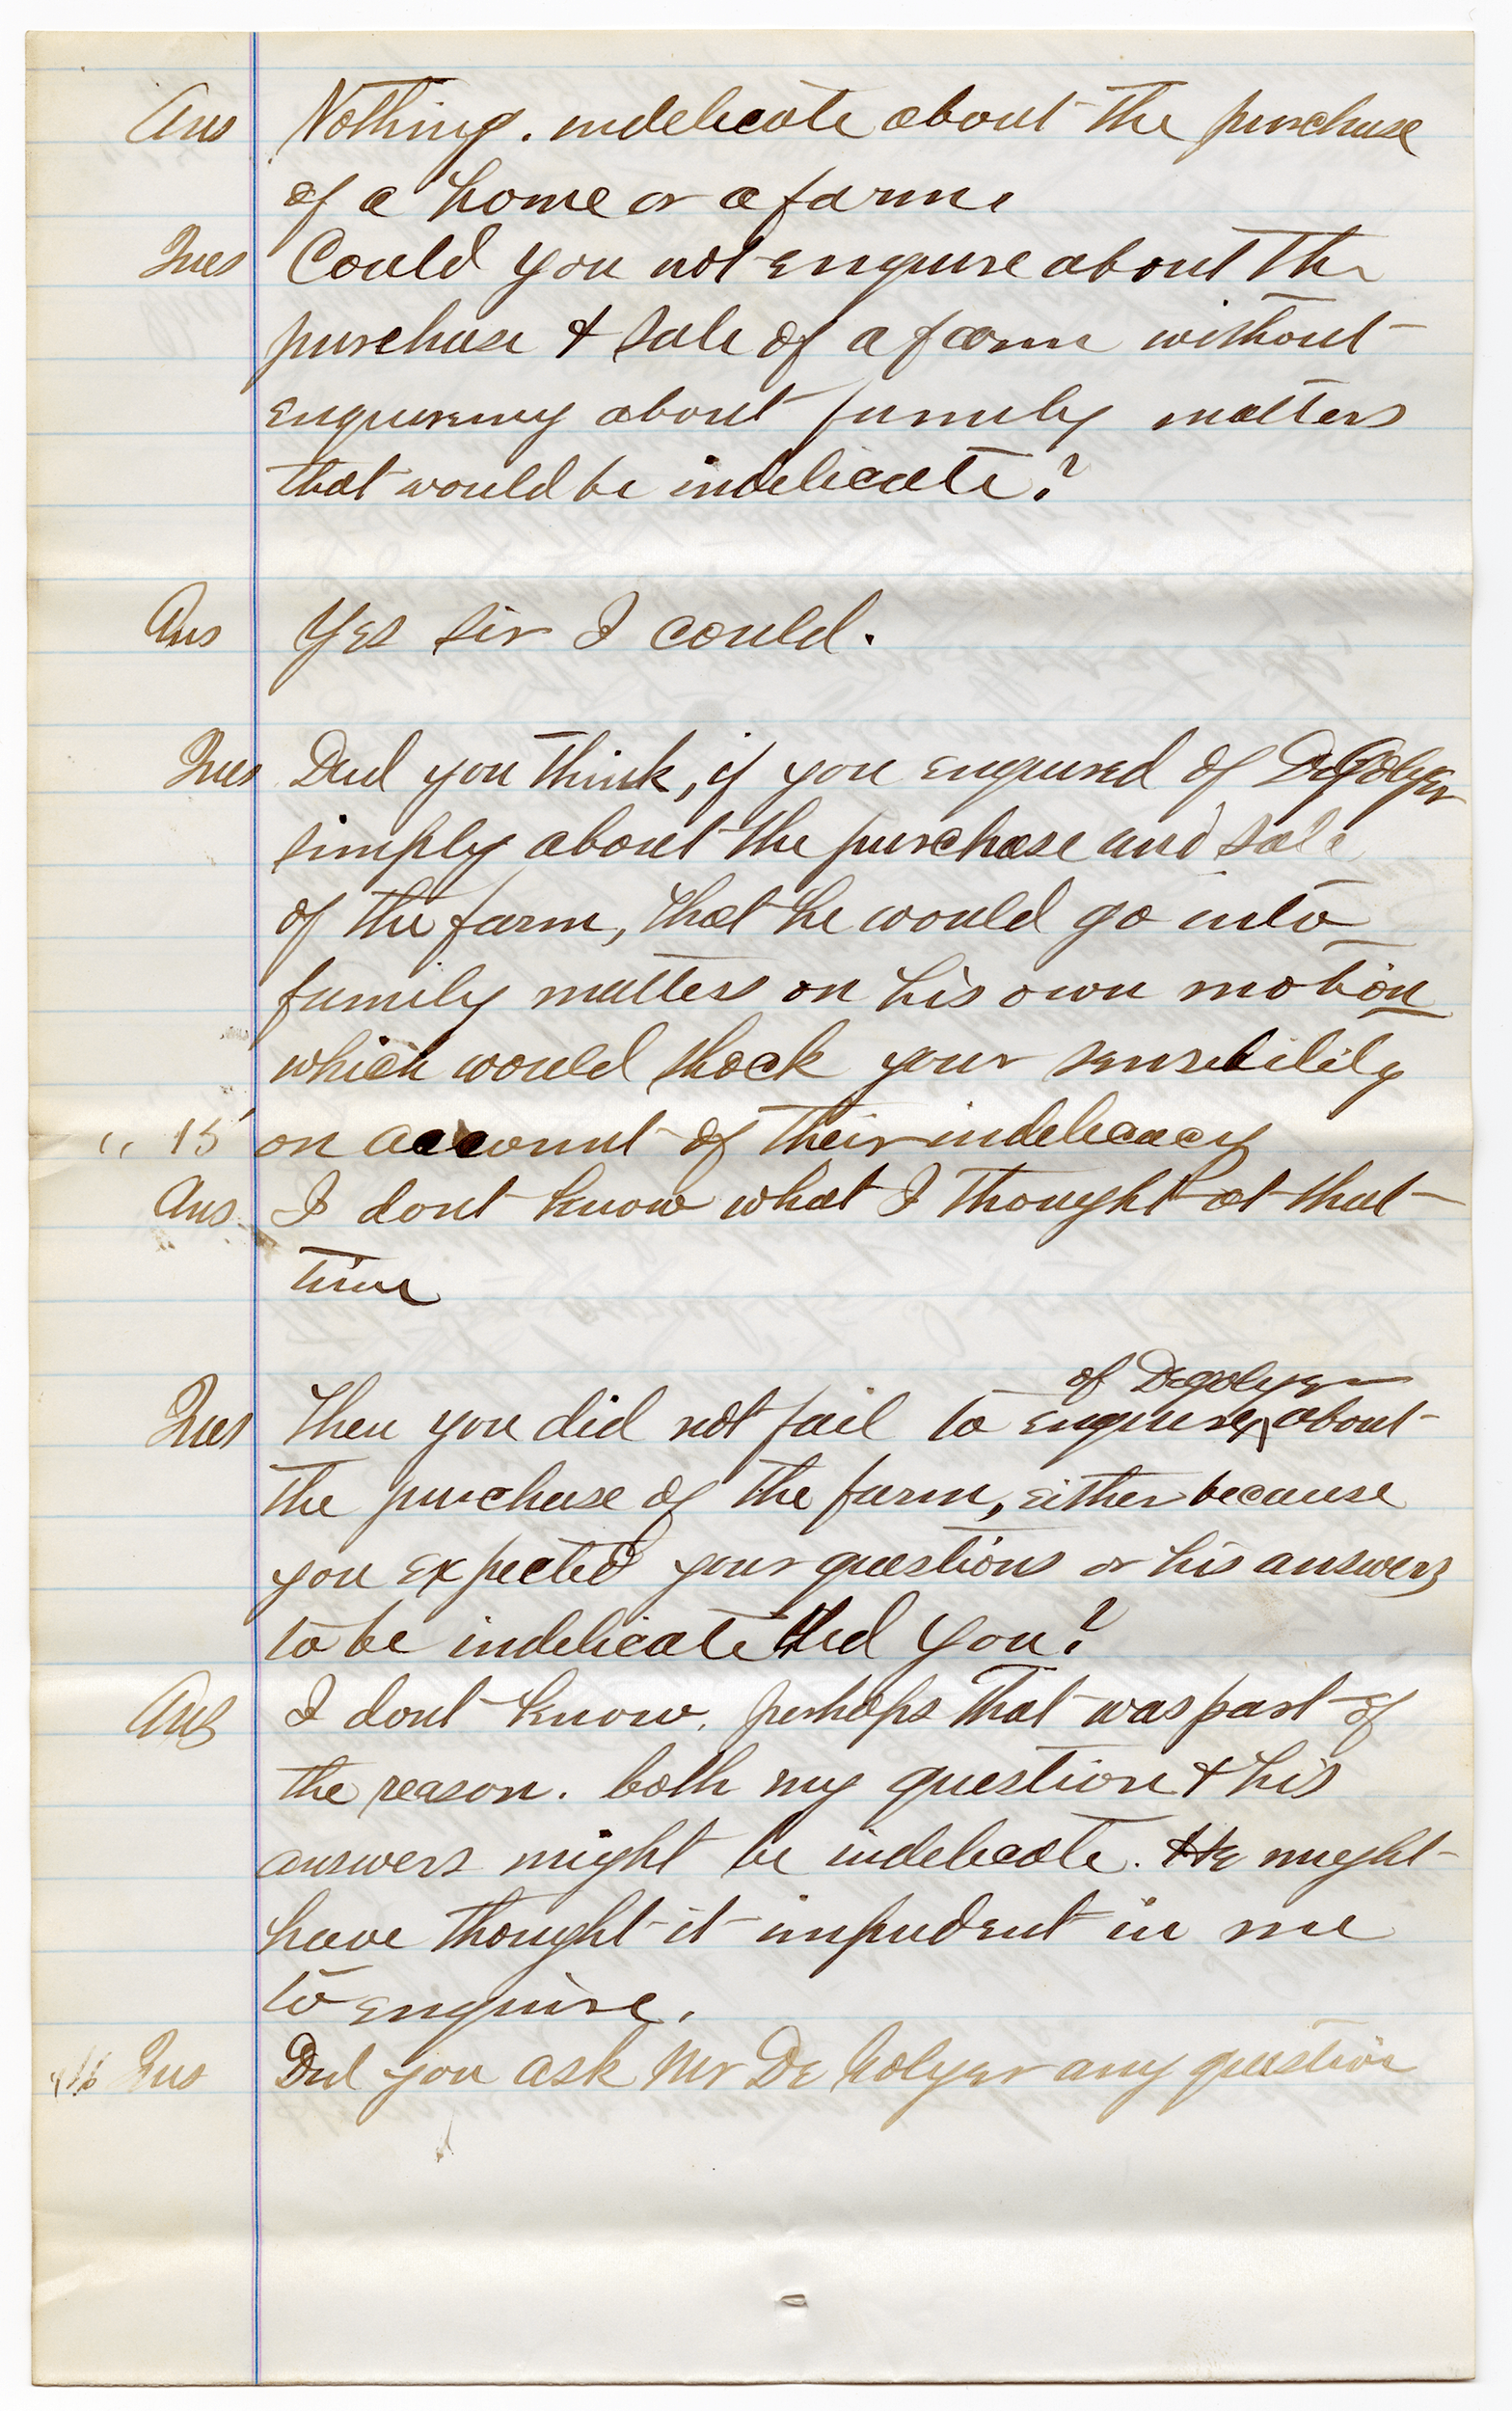 Ans Nothing. indelicate about the purchase
of a home or a farm
Ques Could you not enquire about the
purchase & sale of a farm without
enquireing about family matters
that would be indelicate?
Ans Yes sir I could.
Ques Did you think, if you enquired of DeGolyer
simply about the purchase and sale
of the farm, that he would go into
family matters on his own motion
which would shock your sensibility
" 15 on account of their indelicacy
Ans I dont know what I thought at that
time
of Degolyer
Ques Then you did not fail to enquire ^ about
the purchase of the farm, either because
you expected your questions or his answers
to be indelicate did you?
Ans I dont know. perhaps that was part of
the reason. both my question & his
answers might be indelicate. He might
have thought it impudent in me
to enquire.
16 Ques Did you ask Mr De Golyer any question